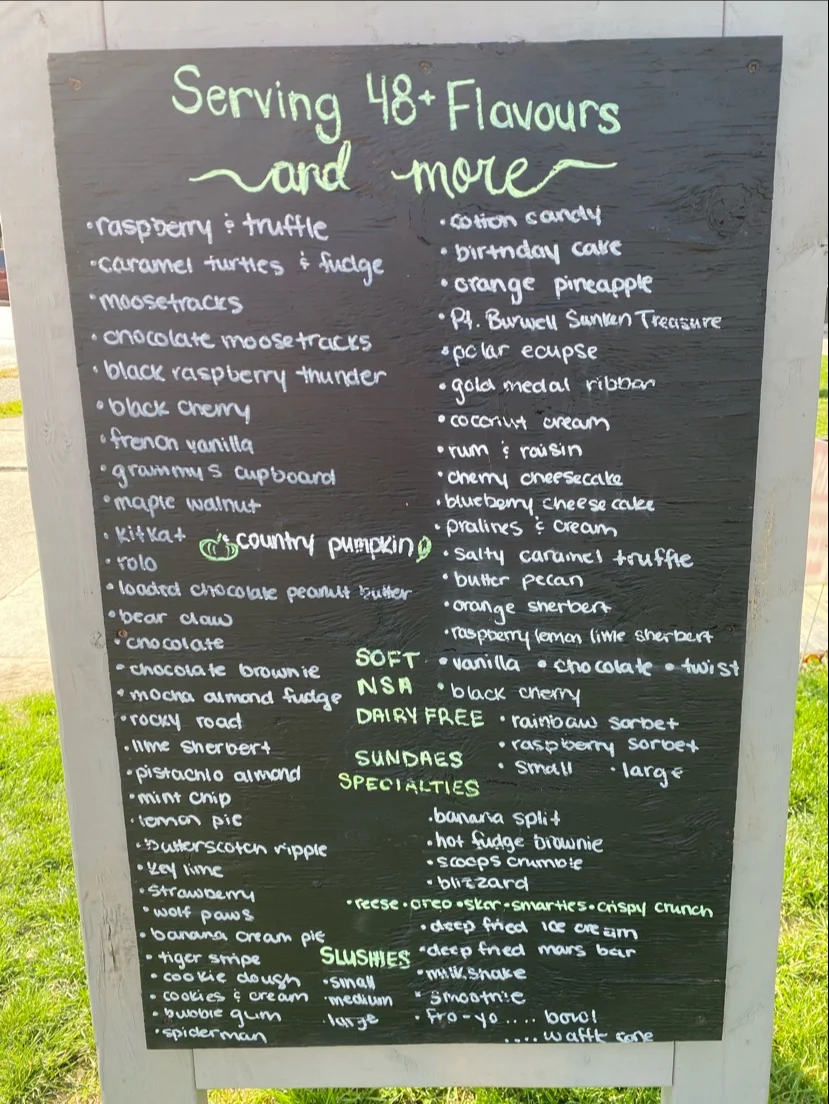 Serving 48+ Flavours
and more
•raspberry & truffle
•caramel turtles & fudge
•moosetracks
•chocolate moosetracks
•black raspberry thunder
•black cherry
•french vanilla
•grammys cupboard
•maple walnut
•kitkat
country pumpkin
•rolo
•loaded chocolate peanut butter
•bear claw
•chocolate
•chocolate brownie
•mocha almond fudge
•rocky road
•lime sherbert
•pistachio almond
•mint chip
•lemon pie
•butterscotch ripple
•key lime
•strawberry
•wolf paws
•banana cream pie
•tiger stripe
•cookie dough
•cookies & cream
•bubble gum
•spiderman
•cotton candy
•birthday cake
•orange pineapple
•Pt. Burwell Sunken Treasure
•polar eclipse
•gold medal ribbon
•coconut cream
•rum & raisin
•cherry cheesecake
•blueberry cheesecake
•pralines & cream
•salty caramel truffle
•butter pecan
•orange sherbert
•raspberry lemon lime sherbert
SOFT •vanilla •chocolate •twist
NSA •black cherry
DAIRY FREE •rainbow sorbet
•raspberry sorbet
SUNDAES •small •large
SPECIALTIES
•banana split
•hot fudge brownie
•scoops crumble
•blizzard
•reese •oreo •skor •smarties •crispy crunch
•deep fried ice cream
•deep fried mars bar
•milkshake
•smoothie
•fro-yo .... bowl
.... waffle cone
SLUSHIES
•small
•medium
•large